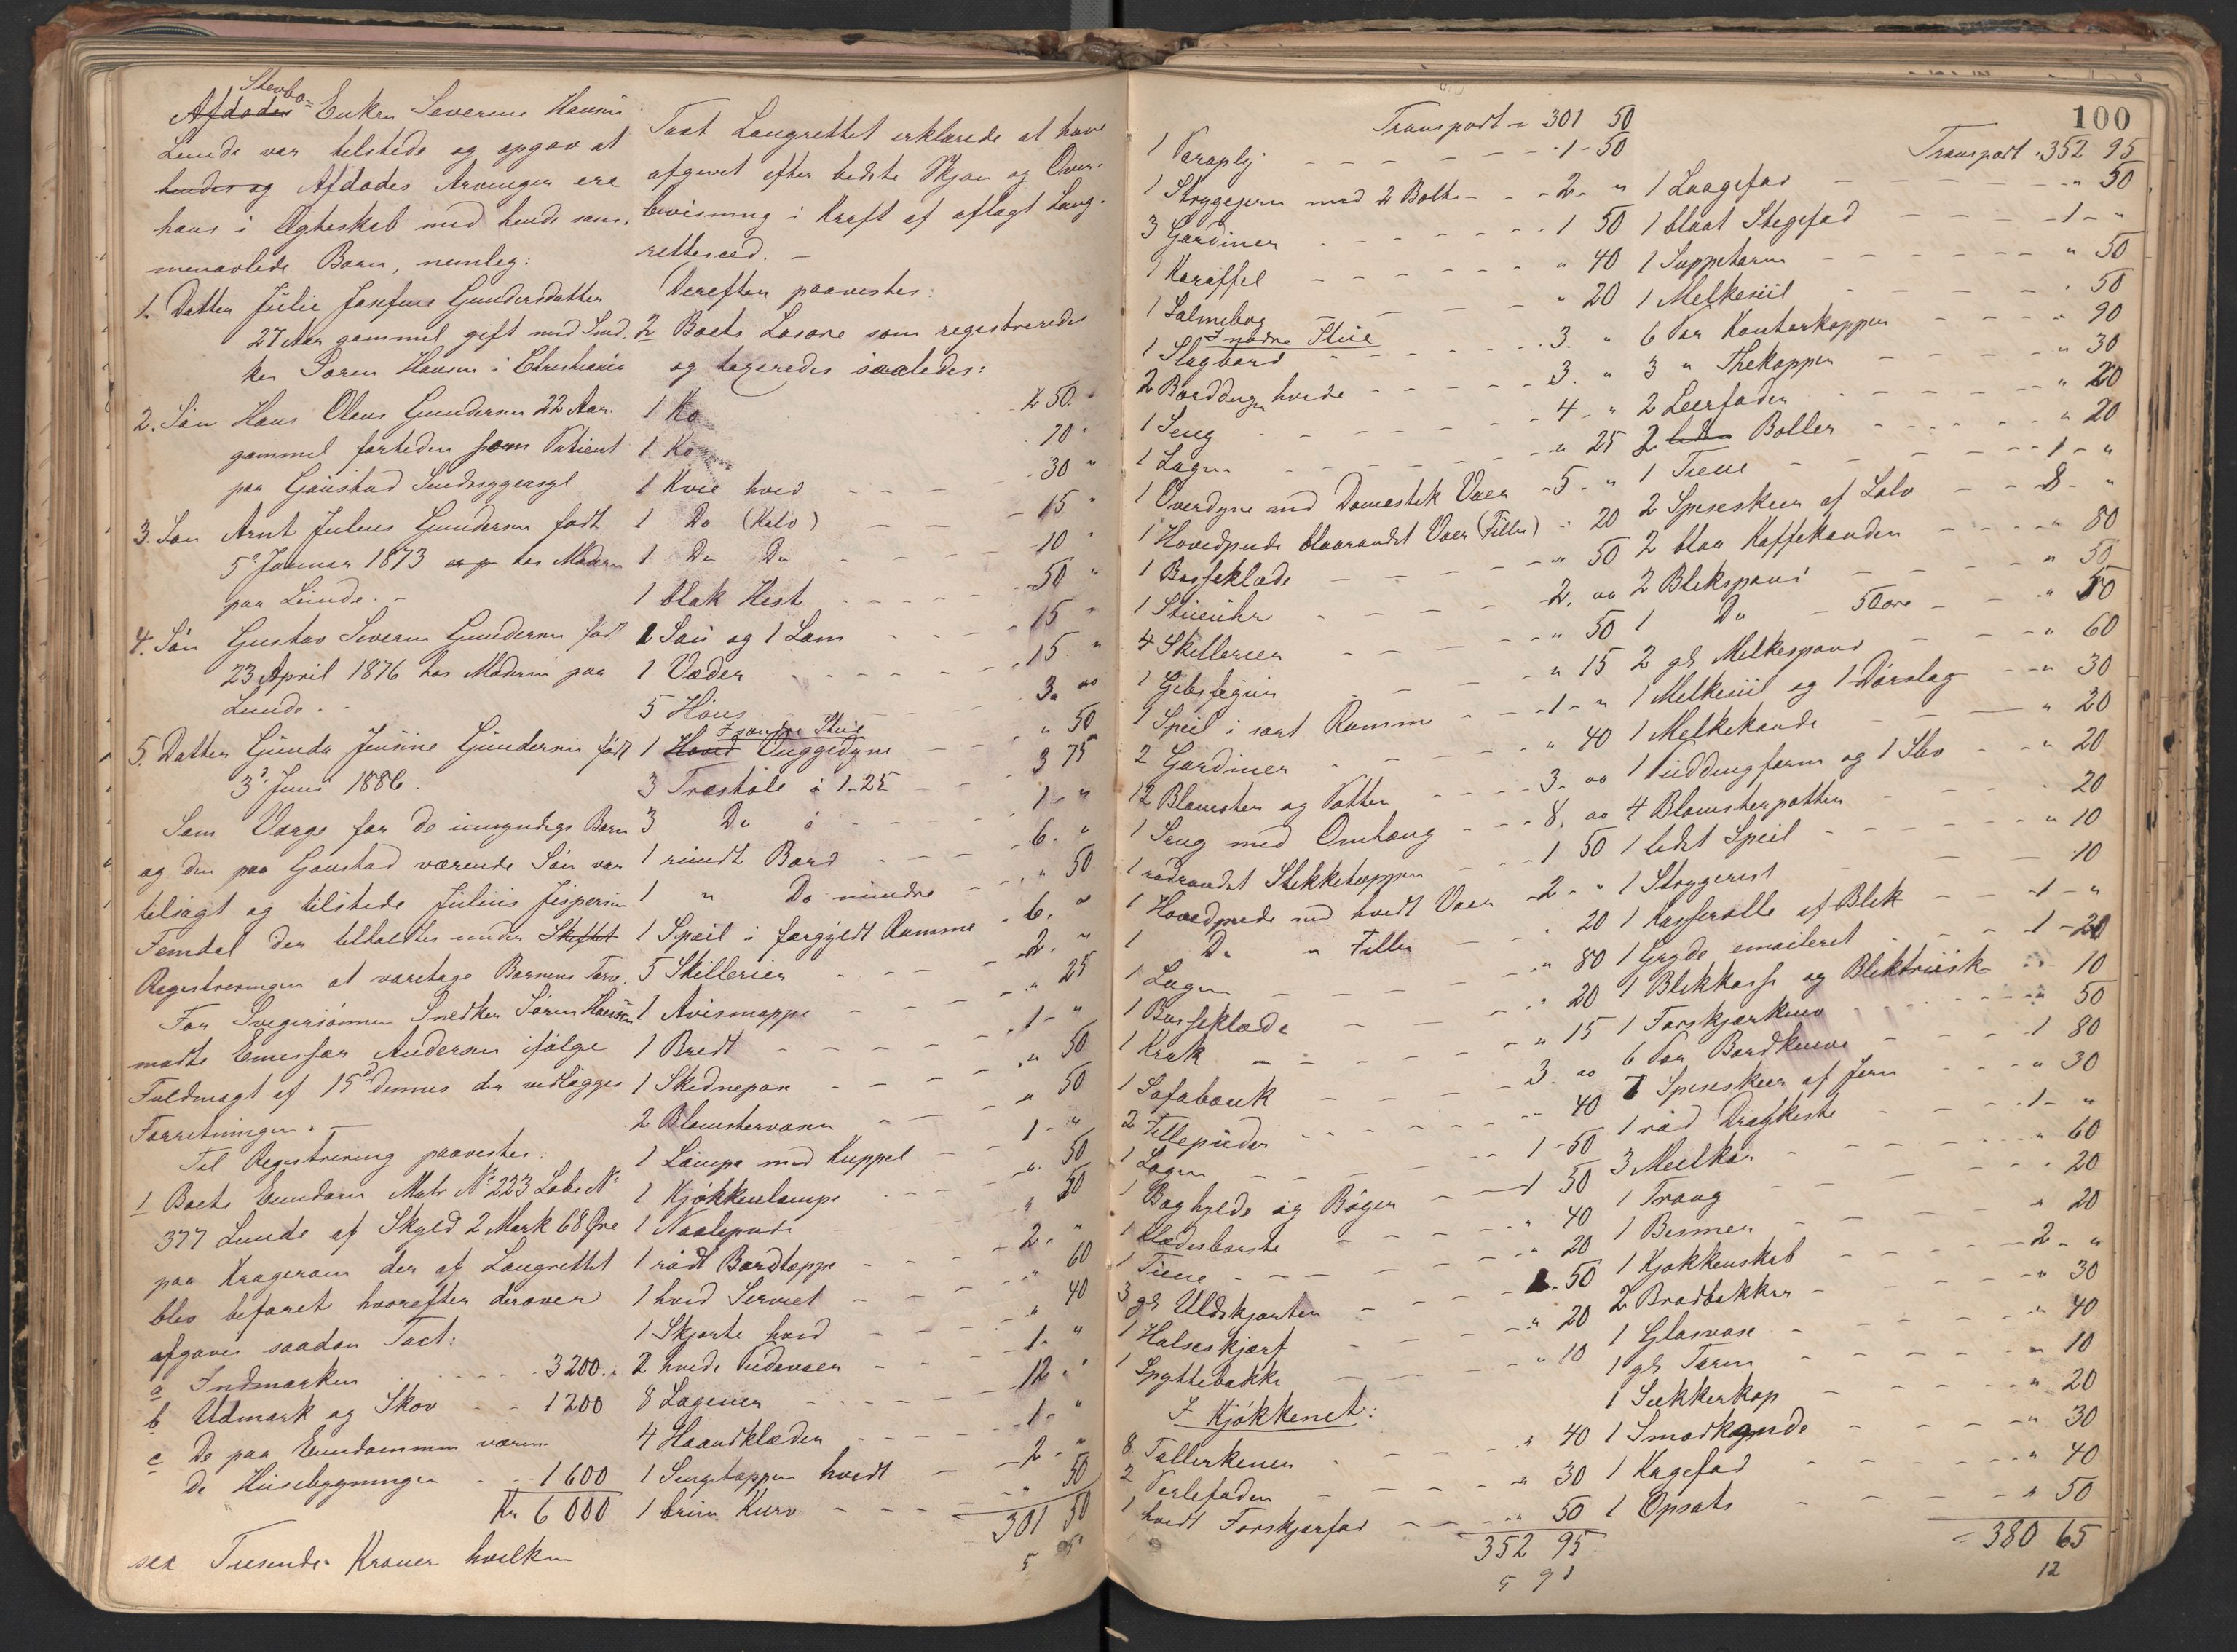 Stervbo=
Afdødes Enken Severine Hansen
Lunde var tilstede og opgav at
hendes og Afdødes Arvinger ere
hans i Ægteskab med hende sam-
menavlede Børn, nemlig:
1. Datter Julie Josefine Gundersdatter
27 Aar gammel gift med Sned-
ker Søren Hansen i Christiania
2. Søn Hans Olaus Gundersen 22 Aar
gammel fortiden som Patient
paa Gaustad Sindsygeasyl
3. Søn Arnt Julius Gundersen født
5 Januar 1873 hos Moderen
paa Lunde. -
4. Søn Gustav Severin Gundersen født
23 April 1876 hos Moderen paa
Lunde. -
5. Datter Gunda Jensine Gundersen født
3 Juni 1886.
Som Værge for de umyndige Børn
og den paa Gaustad værende Søn var
tilsagt og tilstede Julius Jespersen
Femdal der tilholdtes under Skiftet
Registreringen at varetage Børnenes Tarv.
For Svigersønnen Snedker Søren Hansen
mødte Andersen ifølge
Fuldmagt af 15 dennes der vedlægges
Forretningen. -
Til Registrering paavistes:
1 Boets Eiendom Matr No 223 Løbe No
377 Lunde af Skyld 2 Mark 68 Øre
paa der af Laugrettet
blev befaret hvorefter derover
afgaves saadan Taxt:
a Indmarken 3200 ..
b Udmark og Skov - - 1200
c De paa Eiendommen væren-
de Husebygninger - - 1600
Kr 6000
sex Tusinde Kroner hvilken
Taxt Laugrettet erklærede at have
afgivet efter bedste Skjøn og Over-
bevisning i Kraft af aflagt Laug-
retteseed. -
Derefter paavistes:
2 Boets Løsøre som registreredes
og taxeredes saaledes:
1 Ko 50 "
1 Ko 70 "
1 Kvie hvid - - - 30 "
1 Do (Kalv) - - 15 "
1 Do Do - - 10 "
1 blak Hest - - - 50 "
1 Sau og 1 Lam - - - 15 "
1 Væder - - - - 15 "
5 Høns - - 3 "
I søndre Stue
1 Hoved Duggedyne - - " 50
3 Træstole à 1-25 - - 3 75
3 Do à - - - 1 - "
1 rundt Bord - - - 6. "
1 " Do mindre - - " 50
1 Speil i forgyldt Ramme - 6. "
5 Skillerier - - - - 2. "
1 Avismappe - - - " 25
1 Bredt - - - - 1 - "
1 - - - " 50
2 Blomstervaser - - " 50
1 Lampe med Kuppel - - 1 - "
1 Kjøkkenlampe - - - " 50
1 Naalepude - - - " 50
1 rødt Bordtæppe - - 2. "
1 hvid Serviet - - - " 60
1 Skjorte hvid - - - " 40
2 hvide Pudevaer - - - 1. "
8 Lagener - - - - 12. "
4 Haandklæder - - - 1 - "
1 Sengetæppe hvidt - - 2 - "
1 brun Kurv - - - " 50
301 50
Transport = 301 50
1 Paraply - - - - - 1 - 50
1 Strygejern med 2 Bolte - - 2 - "
3 Gardiner - - - - 1 50
1 Karaffel - - - - " 40
1 Salmebog - - - - " 20
I nørdre Stue
1 Slagbord - - - - 3. "
2 Bordduge hvide - - - - 3. "
1 Seng - - - - 4 - "
1 Lagen - - - - " 25
1 Overdyne med Domestik Vaer - 5 - "
1 Hovedpude blaarandet Vaer (Filler) - " 20
1 Bosseklæde - - - - " 50
1 Stueuhr - - - - 2. "
4 Skillerier - - - - " 50
1 Gibsfigur - - - " 15
1 Speil i sort Ramme - - 1 - "
2 Gardiner - - - " 40
12 Blomster og Potter - - - 3. "
1 Seng med Omhæng - - - 8. "
1 rødrandet Stikketæppe - - 1 50
1 Hovedpude med hvidt Vaer - 2 - "
1 Do " Filler - - " 20
1 Lagen - - - - " 80
1 Bosseklæde - - - " 20
1 Krak - - - - " 15
1 Sofabænk - - - - 3. "
2 Fillepuder - - - - " 40
1 Lagen - - - - 1 - 50
1 Boghylde og Bøger - - 1 50
1 Klædesbørste - - - " 40
1 Tiene - - - - " 20
3 gl. Uldskjorter - - - 50
1 Halseskjærf - - - " 20
1 Spyttebakke - - " 10
I Kjøkkenet:
8 Tallerkener - - - " 40
2 - - - " 30
1 hvidt Forskjærfad - - " 50
352 95
100
Transport . 352 95
1 Laagefad - - - - " 50
1 blaat Stegefad - - - 1 - "
1 Suppeterin - - - - " 50
1 Melkesiil - - - " 50
6 Par Kontorkopper - - - " 90
3 " Thekopper - - - " 30
2 Leerfader - - - - " 20
2 Boller - - - - " 20
1 Tiene - - - - 1 - "
2 Spiseskeer af Sølv - - 8 - "
2 blaa Kaffekander - - - " 80
2 Blikspand - - - - " 50
1 Do - 50 øre - - " 50
2 gl. Melkespand - - - " 60
1 Melkesiil og 1 Dørslag - - " 30
1 Melkekande - - " 20
1 Puddingform og 1 - - " 20
4 Blomsterpotter - - - 20
1 lidet Speil - - - - " 10
1 Strygerist - - - 10
1 Kasserolle af Blik - - 1 - "
1 Gryde emaileret - - - 1 - 20
1 Blikkasse og Bliktragt - " 10
1 Forskjærkniv - - - " 50
6 Par Bordknive - - - 1 80
7 Spiseskeer af Jern - - - " 30
1 rød Dragkiste - - - 1 - "
3 Meelkar - - - - " 60
1 Traug - - - - " 20
1 Bismer - - - - " 20
1 Kjøkkenskab - - - 2 - "
2 Brødbakker - - - - " 30
1 Glasvase - - - - " 40
1 gl. Terin - - - - " 10
1 Sukkerkop - - - " 20
1 Smørkande - - - " 30
1 Kagefad - - - - " 40
1 Opsats - - - - " 50
= 380 65
12